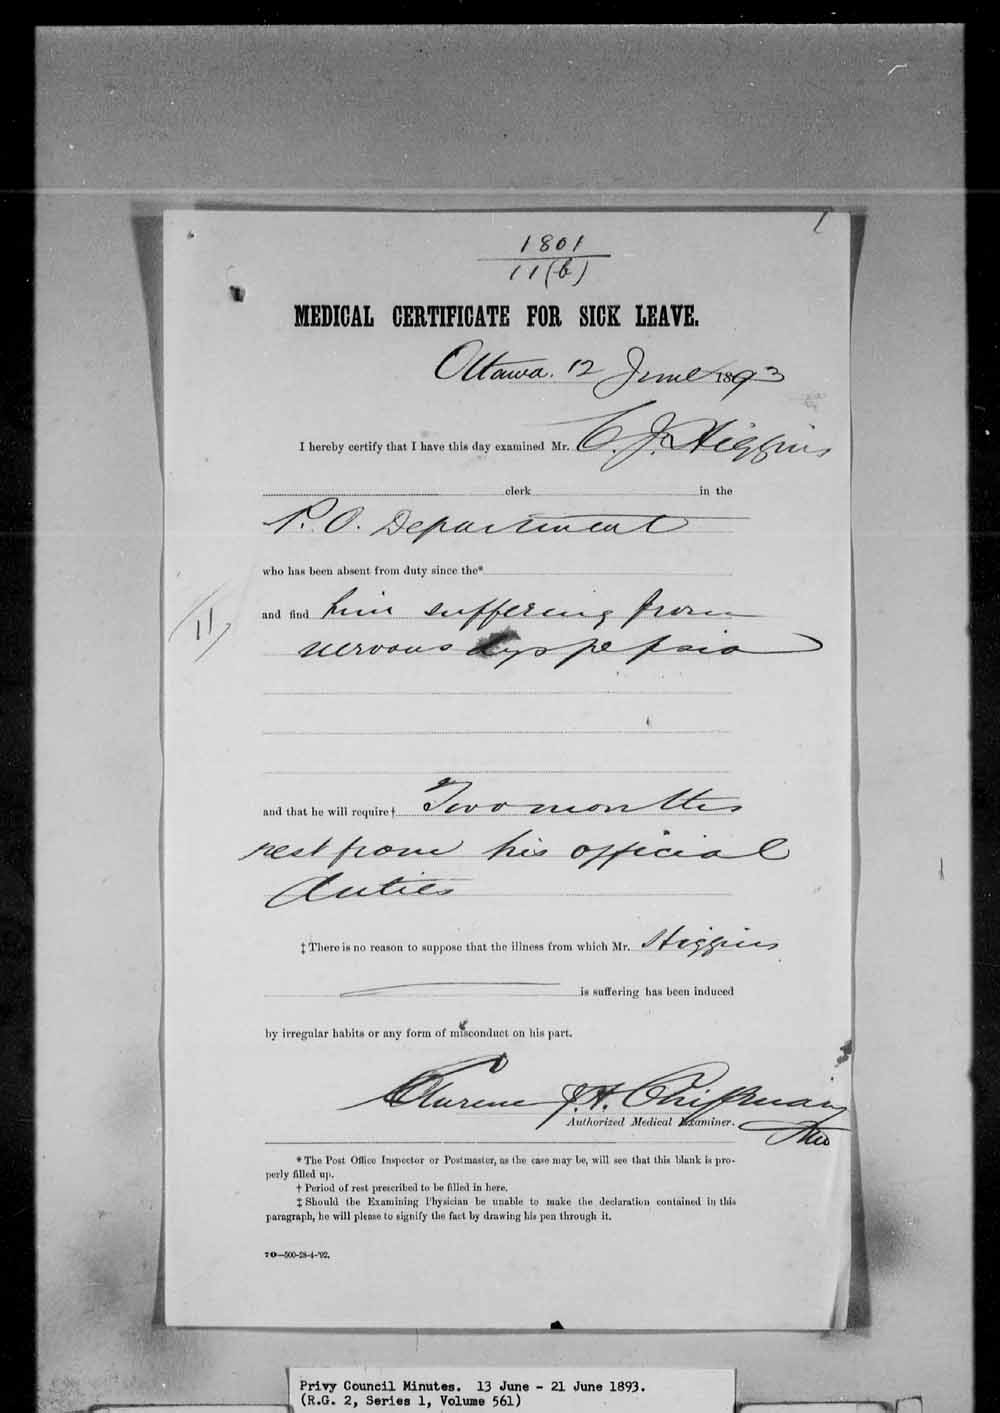 1
1801
11(b)
MEDICAL CERTIFICATE FOR SICK LEAVE.
Ottawa. 12 June 1893
I hereby certify that I have this day examined Mr. C. J. Higgins
clerk in the
P. O. Department
who has been absent from duty since the*
and find him suffering from
11
nervous dyspepsia
and that he will require† Two months
rest from his official
duties
‡ There is no reason to suppose that the illness from which Mr. Higgins
is suffering has been induced
by irregular habits or any form of misconduct on his part.
Clarence J. H. Chipman
Authorized Medical Examiner.
* The Post Office Inspector or Postmaster, as the case may be, will see that this blank is pro-
perly filled up.
† Period of rest prescribed to be filled in here.
‡ Should the Examining Physician be unable to make the declaration contained in this
paragraph, he will please to signify the fact by drawing his pen through it.
70—500-28-4-'92.
Privy Council Minutes. 13 June - 21 June 1893.
(R.G. 2, Series 1, Volume 561)